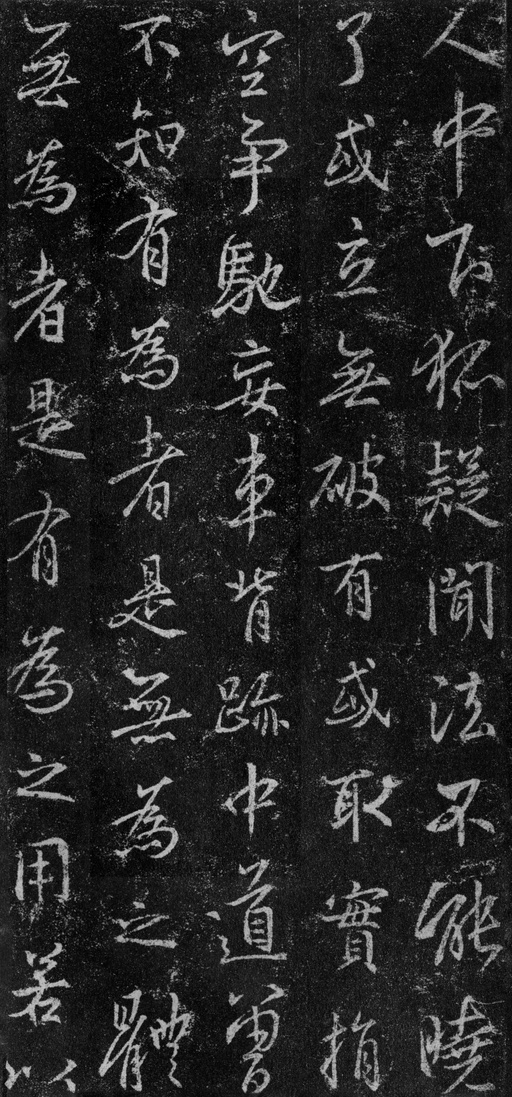 人中有狐疑聞法不能曉
了或立無破有或取實捐
空爭馳妄車背跡中道曾
不知有為者是無為之體
無為者是有為之用若以